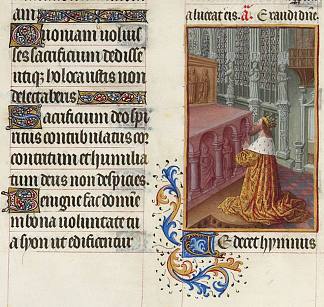 am
Quoniam voluis
ses sacrificium dedisse
utiq; holocaustis non
delectaberis
Sacrificium deo spi
ritus contribulatus cor
contritum et humilia
tum deus non despicies
Benigne fac domine
in bona voluntate tu
a syon ut edificentur
alucat eis. a. Exaudi ne
Te decet hymnus